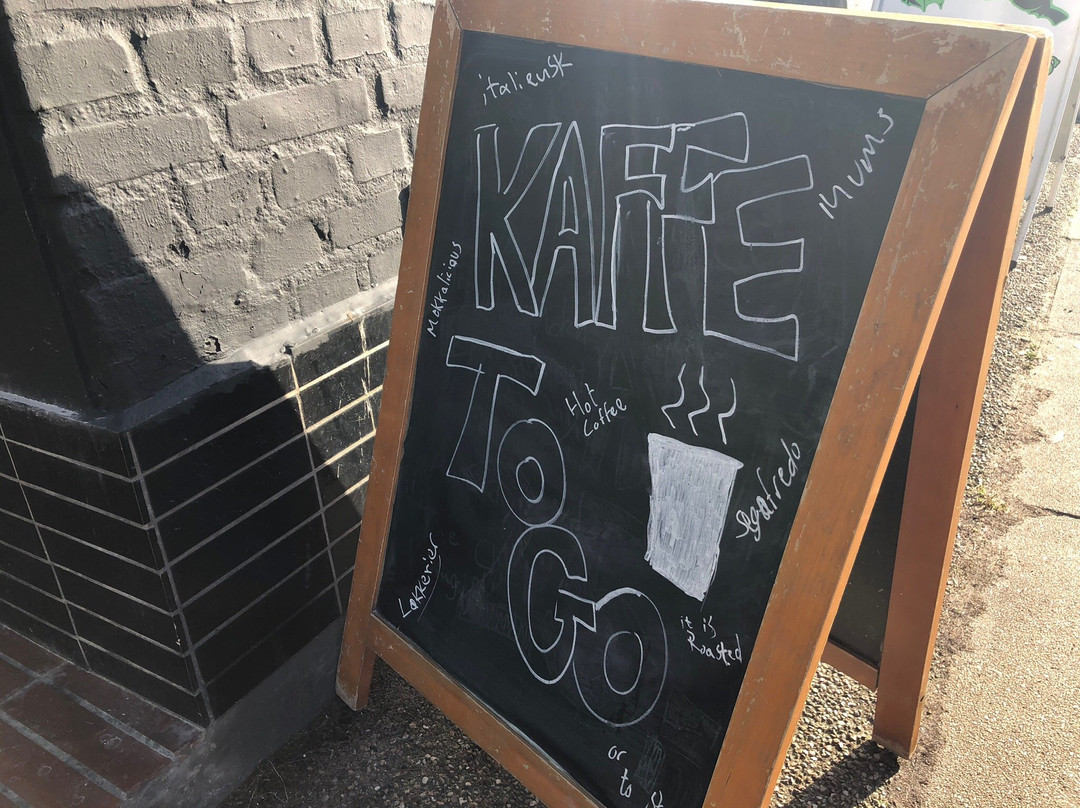 italiensk
KAFFE
Mums
Mokkalicious
TO
Hot
Coffee
GO
segafredo
Lækkerier
it is
Roasted
or
to